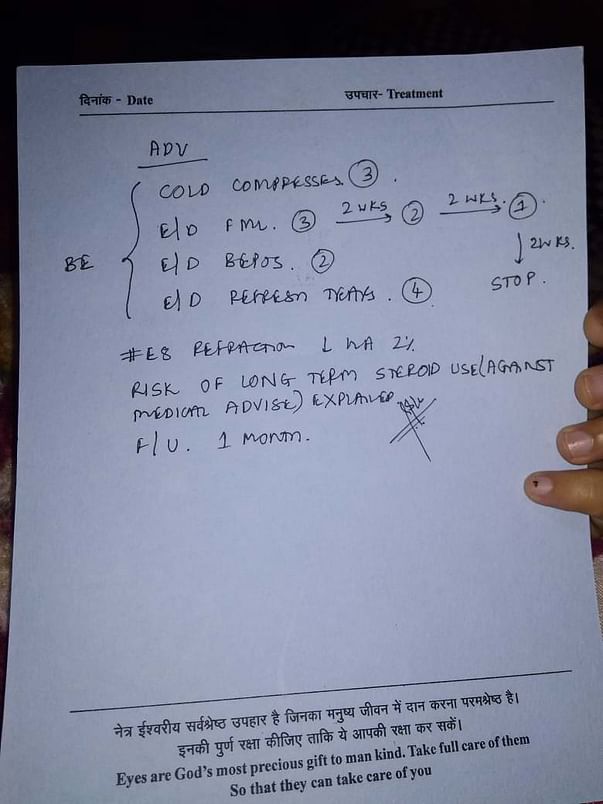 दिनांक - Date उपचार- Treatment
ADV
COLD COMPRESSES ③.
E/D FML. ③ 2 WKS → ② 2 WKS. → ①.
↓ 2WKS.
BE E/D BEPOS. ②
E/D REFRESH TEARS. ④ STOP.
#E8 REFRACTION ↓ HA 2%
RISK OF LONG TERM STEROID USE(AGAINST
MEDICAL ADVISE) EXPLAINED
F/U. 1 MONTH.
नेत्र ईश्वरीय सर्वश्रेष्ठ उपहार है जिनका मनुष्य जीवन में दान करना परमश्रेष्ठ है।
इनकी पुर्ण रक्षा कीजिए ताकि ये आपकी रक्षा कर सकें।
Eyes are God's most precious gift to man kind. Take full care of them
So that they can take care of you